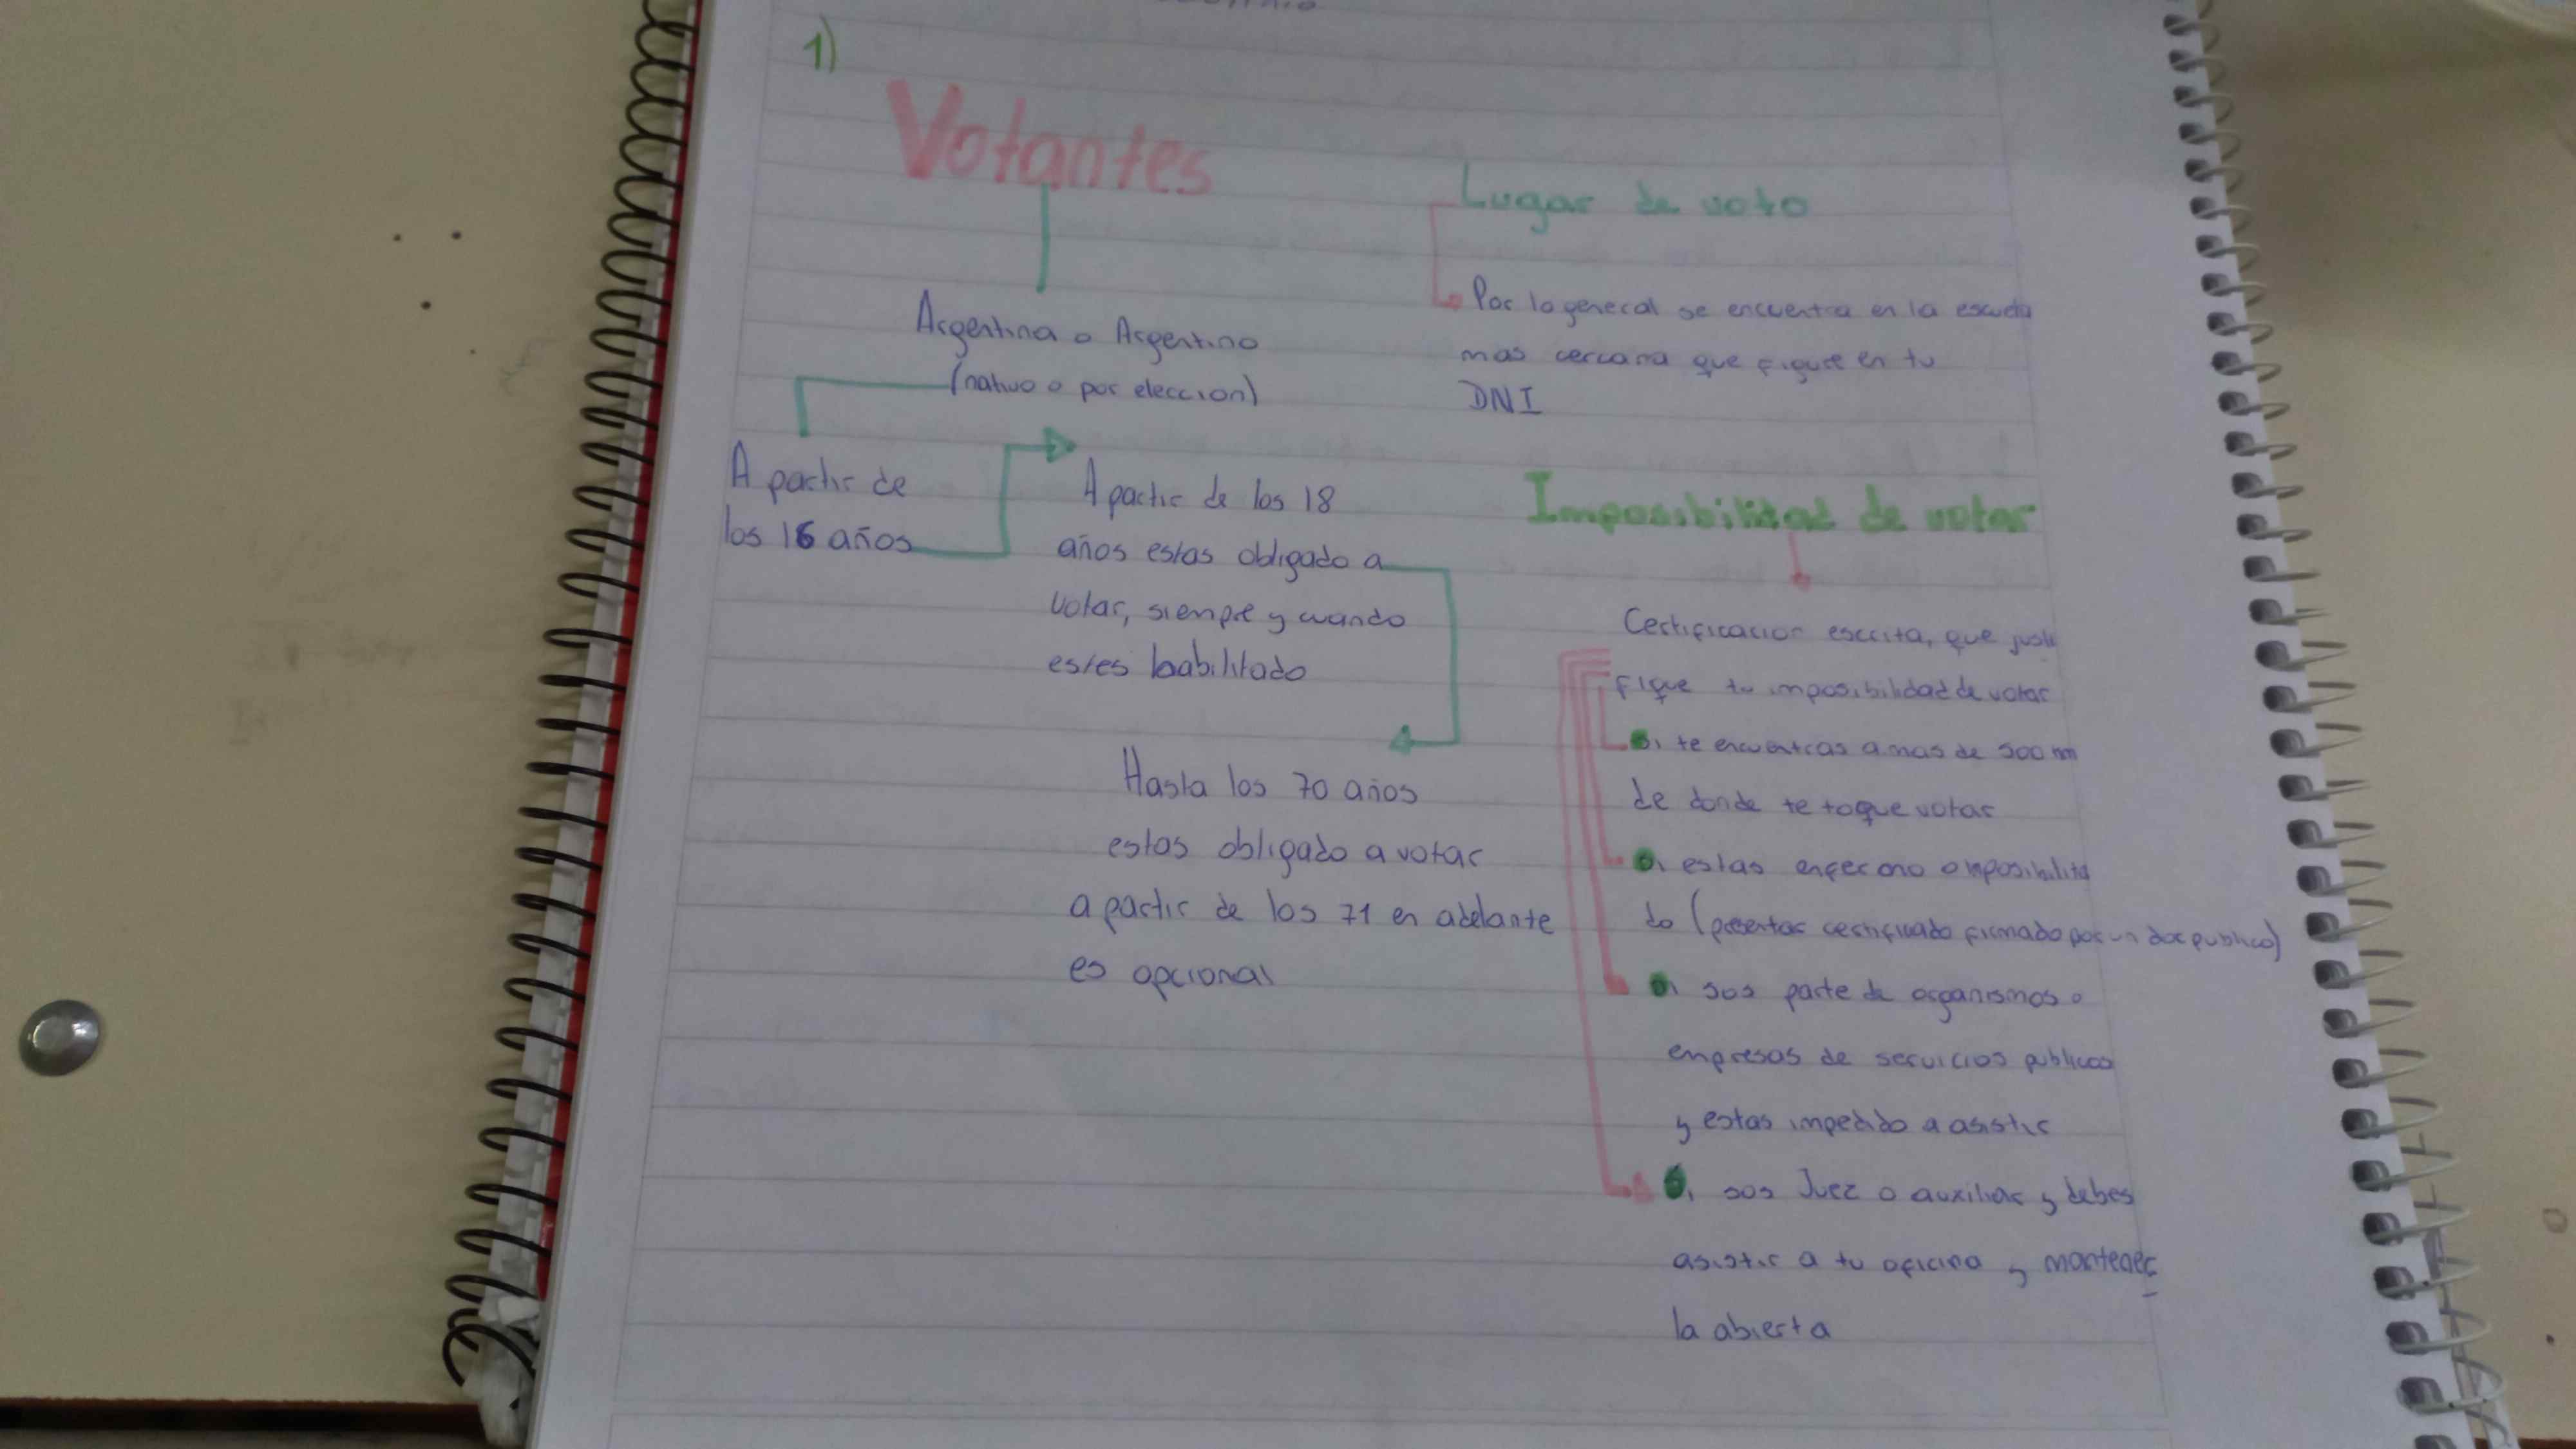 1)
Votantes
Argentina o Argentino
(nativo o por eleccion)
A partir de
los 16 años
A partir de los 18
años estas obligado a
votar, siempre y cuando
estes habilitado
Hasta los 70 años
estas obligado a votar
a partir de los 71 en adelante
es opcional
Lugar de voto
Por lo general se encuentra en la escuela
mas cercana que figure en tu
DNI
Impossibilidad de votar
Certificacion escrita, que justi
fique tu imposibilidad de votar
Si te encuentras a mas de 500
de donde te toque votar
Si estas enfermo o imposibilita
do (presentar certificado firmado por un doc publico)
Si sos parte de organismos o
empresas de servicios publicos
y estas impedido a asistir
Si sos Juez o auxiliar y debes
asistir a tu oficina y mantener
la abierta